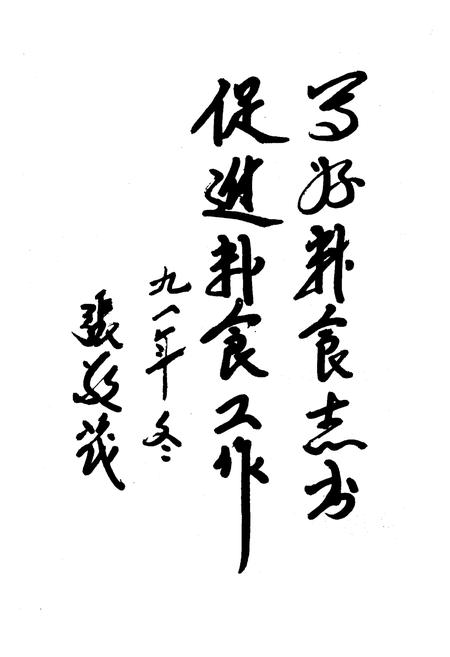 写好粮食志书
促进粮食工作
九一年冬
張敬茂